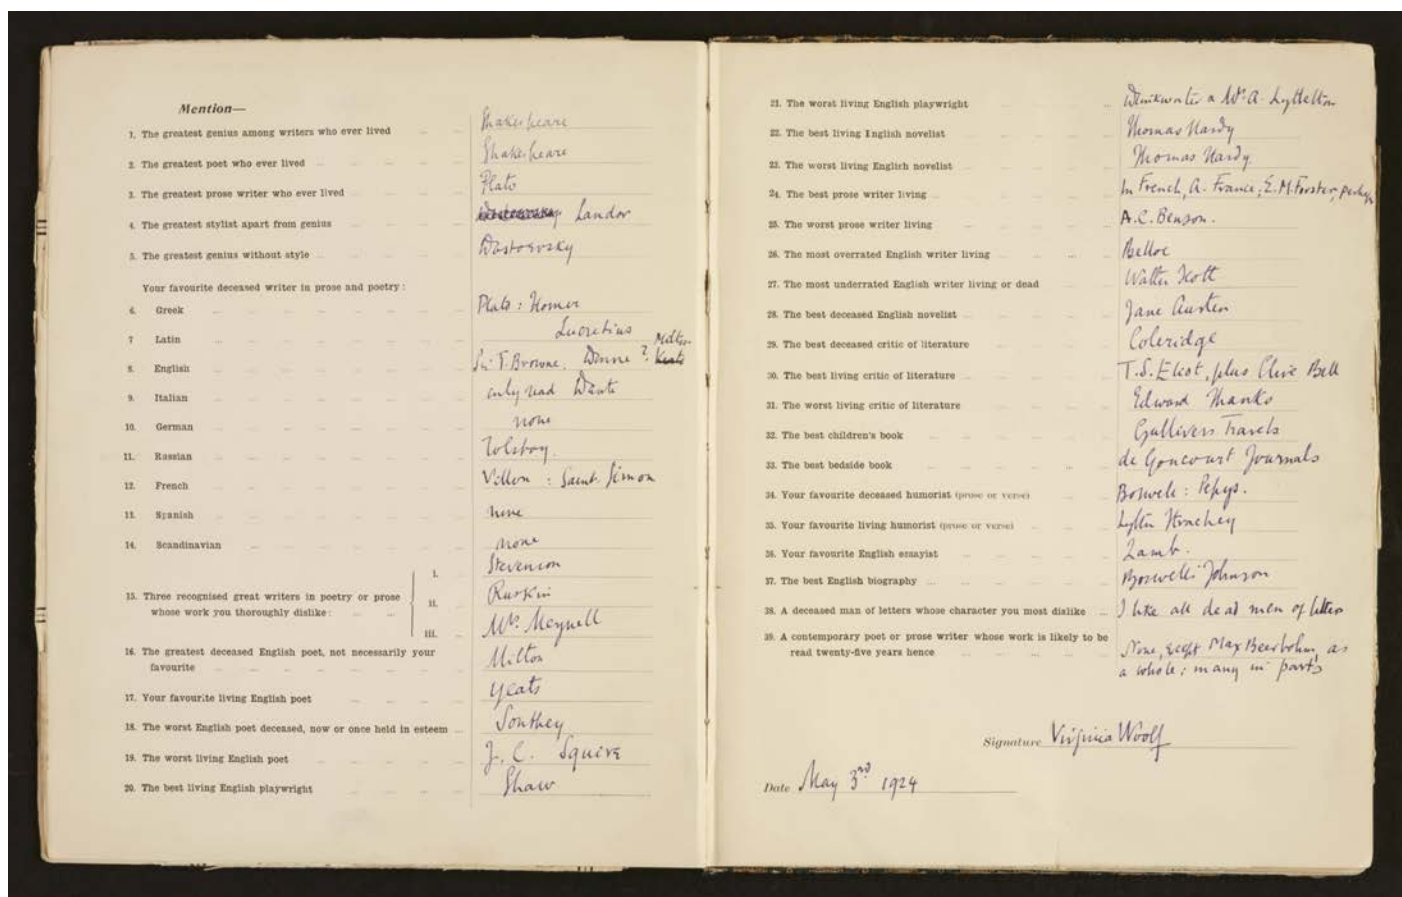 Mention—
1. The greatest genius among writers who ever lived Shakespeare
2. The greatest poet who ever lived Shakespeare
3. The greatest prose writer who ever lived Plato
4. The greatest stylist apart from genius Landor
5. The greatest genius without style Dostoevsky
Your favourite deceased writer in prose and poetry:
6. Greek Plato : Homer
7 Latin Lucretius
8. English Sir T. Browne. Donne? Milton Keats
9. Italian only read Dante
10. German none
11. Russian Tolstoy.
12. French Villon : Saint-Simon
13. Spanish none
14. Scandinavian none
15. Three recognised great writers in poetry or prose whose work you thoroughly dislike:
I. Stevenson
II. Ruskin
III. Mrs. Meynell
16. The greatest deceased English poet, not necessarily your
favourite Milton
17. Your favourite living English poet Yeats
18. The worst English poet deceased, now or once held in esteem Southey
19. The worst living English poet J. C. Squire
20. The best living English playwright Shaw
21. The worst living English playwright Drinkwater & Lyttelton
22. The best living English novelist Thomas Hardy
23. The worst living English novelist Thomas Hardy
24. The best prose writer living In French, A. France; E. M. Forster, perhaps
25. The worst prose writer living A. C. Benson.
26. The most overrated English writer living Belloc
27. The most underrated English writer living or dead Walter Scott
28. The best deceased English novelist Jane Austen
29. The best deceased critic of literature Coleridge
30. The best living critic of literature T. S. Eliot, plus Clive Bell
31. The worst living critic of literature Edward Shanks
32. The best children's book Gullivers Travels
33. The best bedside book de Goncourt Journals
34. Your favourite deceased humorist (prose or verse) Boswell : Pepys.
35. Your favourite living humorist (prose or verse) Lytton Strachey
36. Your favourite English essayist Lamb.
37. The best English biography Boswell's Johnson
38. A deceased man of letters whose character you most dislike I like all dead men of letters
39. A contemporary poet or prose writer whose work is likely to be
read twenty-five years hence None, except Max Beerbohm, as
a whole; many in parts
Signature Virginia Woolf
Date May 3rd 1924